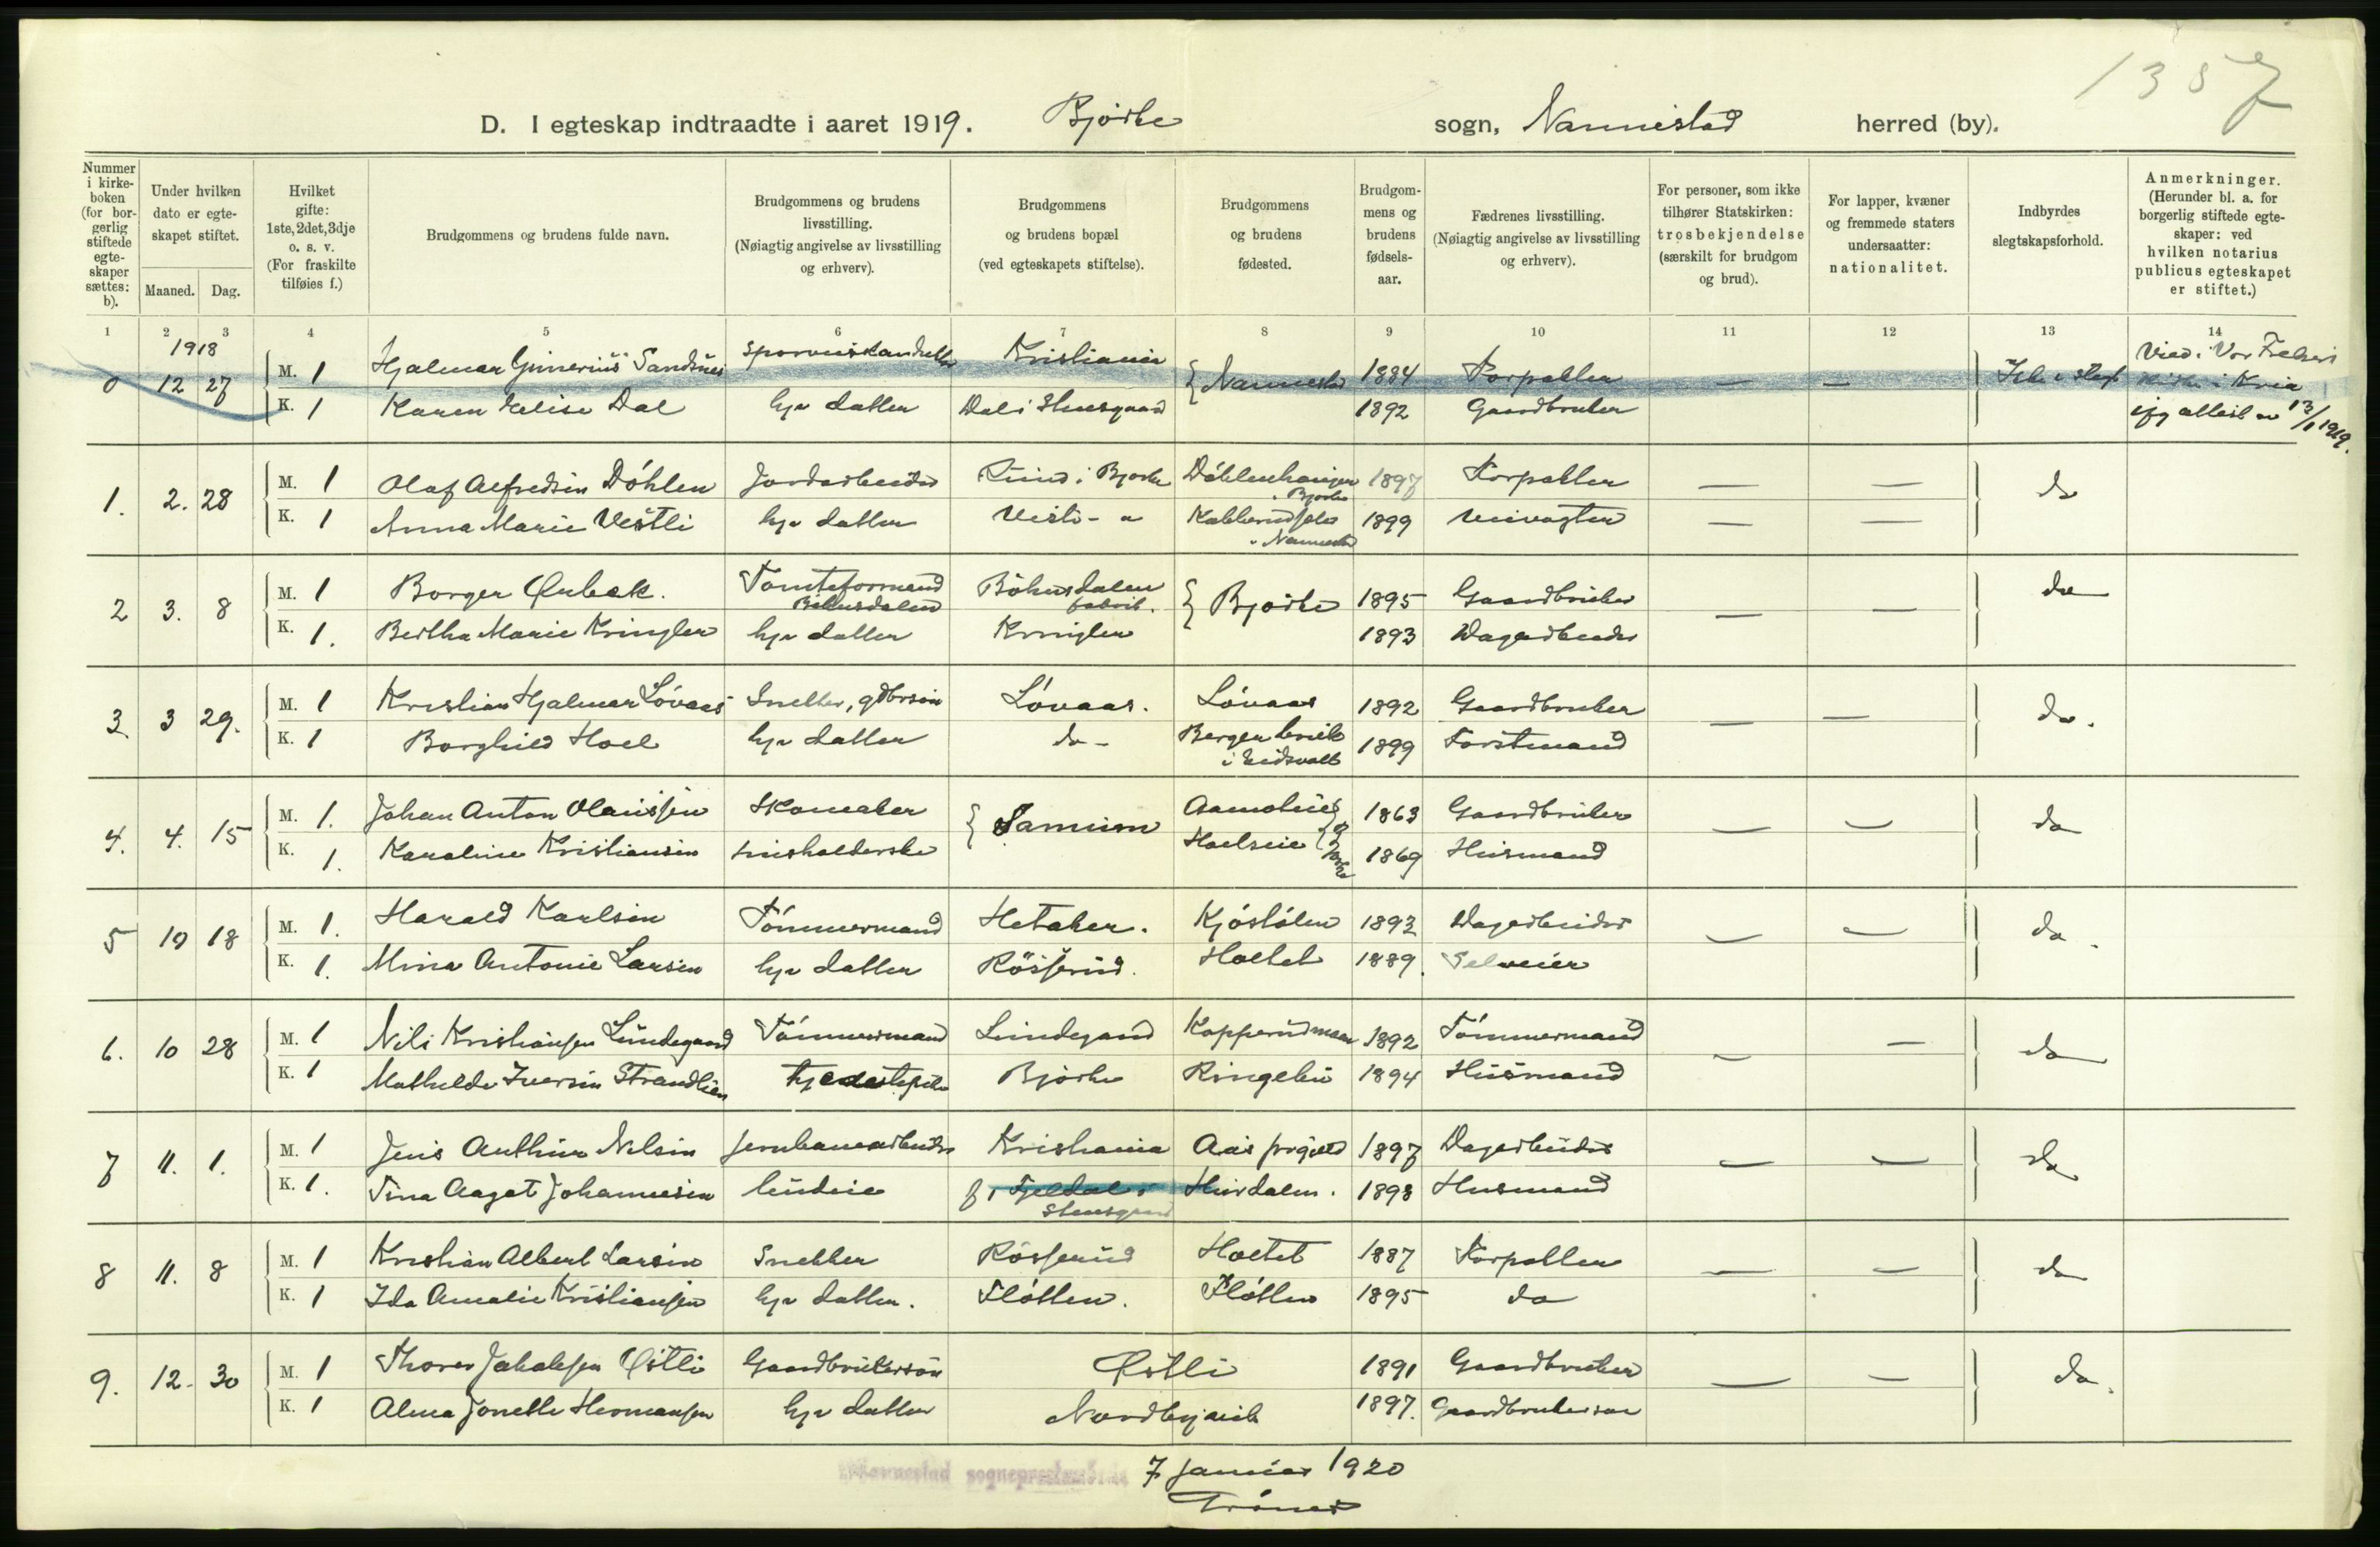 1357
D. I egteskap indtraadte i aaret 1919. Bjørke sogn, Nannestad herred (by).
Nummer i kirke-boken (for bor-gerlig stiftede egte-skaper sættes: b).
Under hvilken dato er egte-skapet stiftet.
Maaned. Dag.
Hvilket gifte: 1ste, 2det, 3dje o. s. v. (For fraskilte tilføies f.)
Brudgommens og brudens fulde navn.
Brudgommens og brudens livsstilling. (Nøiagtig angivelse av livsstilling og erhverv).
Brudgommens og brudens bopæl (ved egteskapets stiftelse).
Brudgommens og brudens fødested.
Brudgom-mens og brudens fødsels-aar.
Fædrenes livsstilling. (Nøiagtig angivelse av livsstilling og erhverv).
For personer, som ikke tilhører Statskirken: trosbekjendelse (særskilt for brudgom og brud).
For lapper, kvæner og fremmede staters undersaatter: nationalitet.
Indbyrdes slegtskapsforhold.
Anmerkninger. (Herunder bl. a. for borgerlig stiftede egte-skaper: ved hvilken notarius publicus egteskapet er stiftet.)
1 2 3 4 5 6 7 8 9 10 11 12 13 14
1918
0 12 27 M. 1 Hjalmar Gunerius Sandnes Kristiania { Nannestad 1884 — — Viet i Vor Frelsers
K. 1 Karen Elise Dal hjv datter Dal i Stensgaard 1892 Gaardbruker kirke i Kria
ifg attest av 13/1 1919.
1. 2. 28 M. 1 Olaf Alfredsen Döhlen Jordarbeider Rud i Bjørke Döhlenhaugen i Bjørke 1897 — — do
K. 1 Anna Marie Vestli hjv datter Vestli - " Nannestad 1899 Veivogter — —
2 3. 8 M. 1 Borger Ørbek. Tomteformand Bøhnsdalen Bøhnsdalen fabrik. { Bjørke 1895 Gaardbruker — — do
K. 1. Bertha Marie Kringler hjv datter Kringler 1893 Dagarbeider
3 3 29. M. 1 Kristian Hjalmar Lövaas Snekker, gdbrsøn Lövaas. Lövaas 1892 Gaardbruker — — do.
K. 1 Borghild Hoel hjv datter do - i Eidsvold 1899 Forstmand
4. 4. 15 M. 1. Johan Anton Olaussen Skomaker { 1863 Gaardbruker — — do
K. 1. Karoline Kristiansen husholderske Hoelseie 1869 Husmand
5 10 18 M. 1. Harald Karlsen Tömmermand Hetaker. 1893 Dagarbeider — — do.
K. 1. Mina Antonie Larsen hjv datter Rösserud. Holtet 1889. Selveier
6. 10 28 M. 1 Nils Kristiansen Lundegaard Tömmermand Lundegaard 1892 Tömmermand — — do
K. 1 Mathilde Iversen Strandlien Bjørke Ringebu 1894 Husmand
7 11. 1. M. 1 Jens Arthur Nilsen Jernbanearbeider Kristiania Aas prgjeld 1897 Dagarbeider — — do
K. 1. Tina Aagot Johannesen budeie Stensgaard Hurdalen. 1898 Husmand
8 11. 8 M. 1 Kristian Albert Larsen Snekker Rösserud Holtet 1887 — — do
K. 1 Ida Amalie Kristiansen hjv datter. Flötten. Flötten 1895 do
9. 12. 30 M. 1 Thorer Jakobsen Østli Gaardbrukersøn Østli 1891 Gaardbruker — — do.
K. 1 Alma Jonette Hermansen hjv datter 1897. Gaardbruker
Nannestad sogneprestembede 7 januar 1920